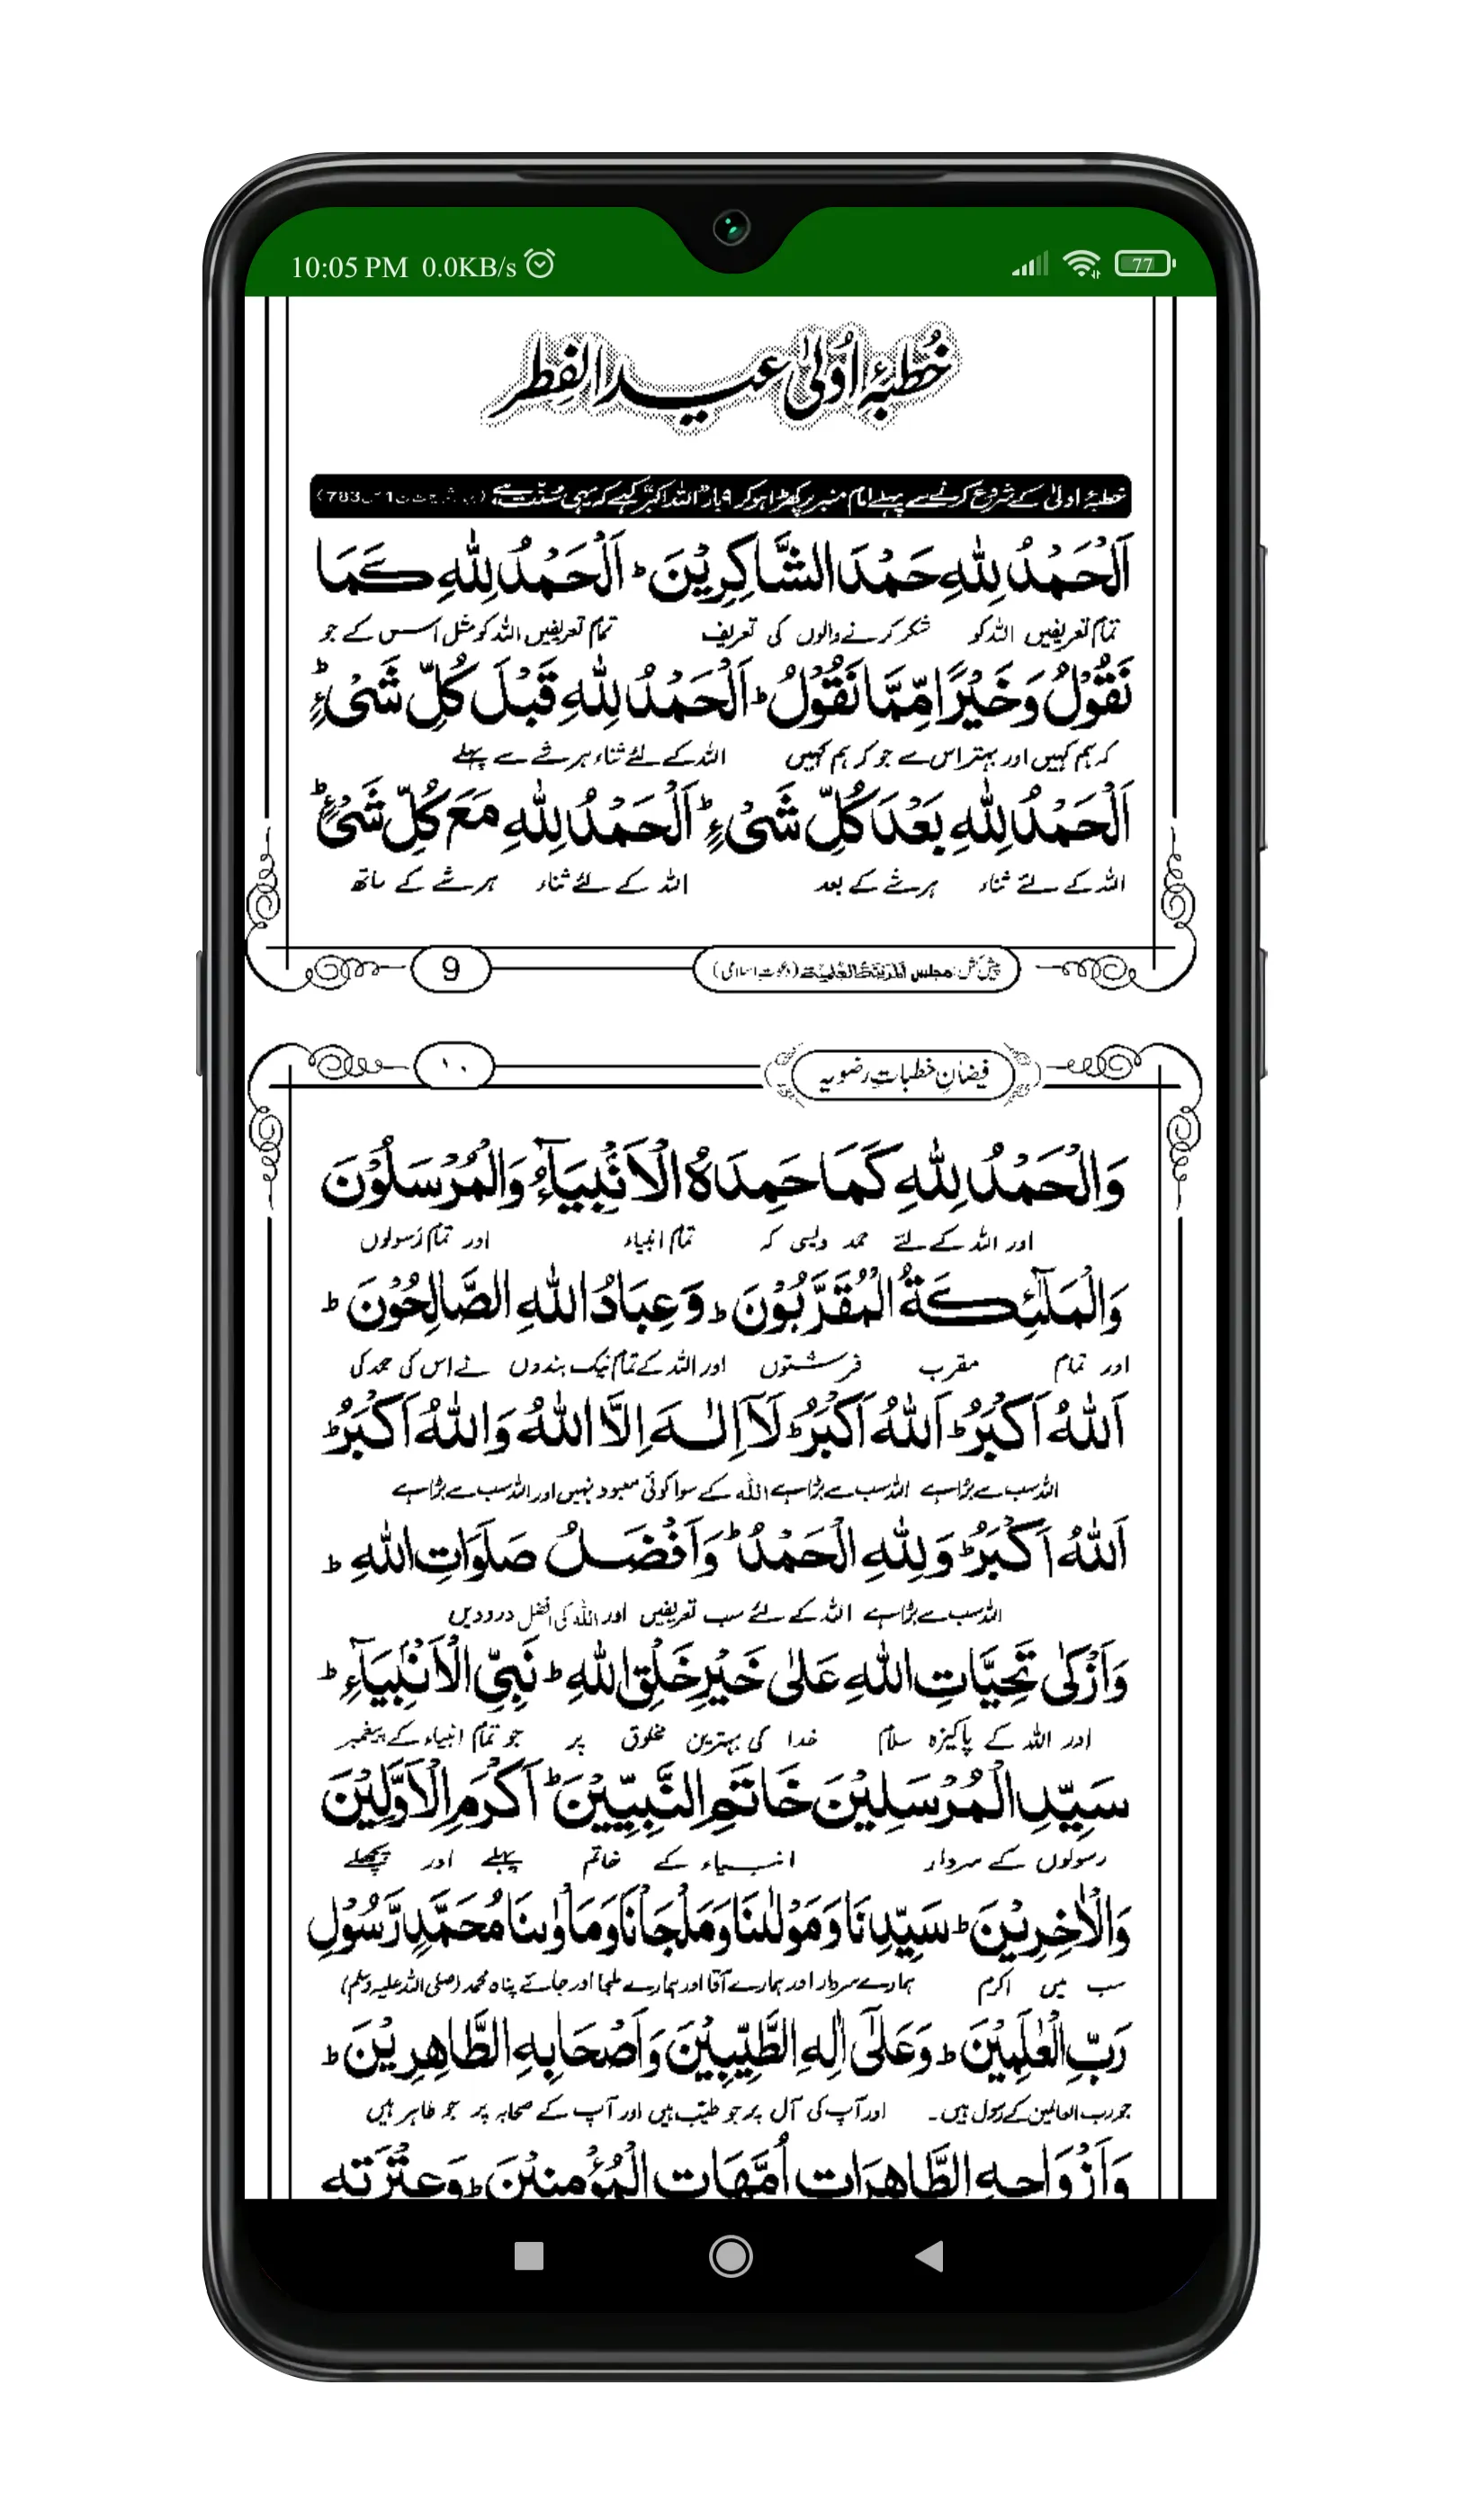 10:05 PM 0.0KB/s
77
خُطبۂ اُوْلیٰ عید الفِطر
خطبۂ اولیٰ کے شروع کرنے سے پہلے امام منبر پر کھڑا ہوکر ۹ بار "اللہ اکبر" کہے کہ یہی سنّت ہے
اَلْحَمْدُ لِلّٰهِ حَمْدَ الشَّاكِرِيْنَ ؕ اَلْحَمْدُ لِلّٰهِ كَمَا
تمام تعریفیں اللہ کو شکر کرنے والوں کی تعریف تمام تعریفیں اللہ کو مثل اس کے جو
نَقُوْلُ وَخَيْرًا مِّمَّا نَقُوْلُ ؕ اَلْحَمْدُ لِلّٰهِ قَبْلَ كُلِّ شَىْءٍ ؕ
کہ ہم کہیں اور بہتر اس سے جو کہ ہم کہیں اللہ کے لئے ثناء ہر شے سے پہلے
اَلْحَمْدُ لِلّٰهِ بَعْدَ كُلِّ شَىْءٍ ؕ اَلْحَمْدُ لِلّٰهِ مَعَ كُلِّ شَىْءٍ ؕ
اللہ کے لئے ثناء ہر شے کے بعد اللہ کے لئے ثناء ہر شے کے ساتھ
پیش کش: مجلس المدینۃ العلمیۃ (دعوتِ اسلامی) 9
فیضانِ خطباتِ رضویہ ۱۰
وَالْحَمْدُ لِلّٰهِ كَمَا حَمِدَهُ الْاَنْۢبِيَآءُ وَالْمُرْسَلُوْنَ
اور اللہ کے لئے حمد ویسی کہ تمام انبیاء اور تمام رسولوں
وَالْمَلٰٓئِكَةُ الْمُقَرَّبُوْنَ ؕ وَعِبَادُ اللّٰهِ الصَّالِحُوْنَ ؕ
اور تمام مقرب فرشتوں اور اللہ کے تمام نیک بندوں نے اس کی حمد کی
اَللّٰهُ اَكْبَرُ ؕ اَللّٰهُ اَكْبَرُ ؕ لَآ اِلٰهَ اِلَّا اللّٰهُ وَاللّٰهُ اَكْبَرُ ؕ
اللہ سب سے بڑا ہے اللہ سب سے بڑا ہے اللہ کے سوا کوئی معبود نہیں اور اللہ سب سے بڑا ہے
اَللّٰهُ اَكْبَرُ ؕ وَلِلّٰهِ الْحَمْدُ ؕ وَاَفْضَلُ صَلَوَاتِ اللّٰهِ ؕ
اللہ سب سے بڑا ہے اللہ کے لئے سب تعریفیں اور اللہ کی افضل درودیں
وَاَزْكٰى تَحِيَّاتِ اللّٰهِ عَلٰى خَيْرِ خَلْقِ اللّٰهِ ؕ نَبِيِّ الْاَنْۢبِيَآءِ ؕ
اور اللہ کے پاکیزہ سلام خدا کی بہترین مخلوق پر جو تمام انبیاء کے پیغمبر
سَيِّدِ الْمُرْسَلِيْنَ خَاتَمِ النَّبِيِّيْنَ ؕ اَكْرَمِ الْاَوَّلِيْنَ
رسولوں کے سردار انبیاء کے خاتم پہلے اور پچھلے
وَالْاٰخِرِيْنَ ؕ سَيِّدِنَا وَمَوْلٰىنَا وَمَلْجَانَا وَمَاْوٰىنَا مُحَمَّدٍ رَّسُوْلِ
سب میں اکرم ہمارے سردار اور ہمارے آقا اور ہمارے ملجا اور جائے پناہ محمد (صلی اللہ علیہ وسلم)
رَبِّ الْعٰلَمِيْنَ ؕ وَعَلٰٓى اٰلِهِ الطَّيِّبِيْنَ وَاَصْحَابِهِ الطَّاهِرِيْنَ ؕ
جو رب العالمین کے رسول ہیں۔ اور آپ کی آل پر جو طیّب ہیں اور آپ کے صحابہ پر جو طاہر ہیں
وَاَزْوَاجِهِ الطَّاهِرَاتِ اُمَّهَاتِ الْمُؤْمِنِيْنَ ؕ وَعِتْرَتِهِ